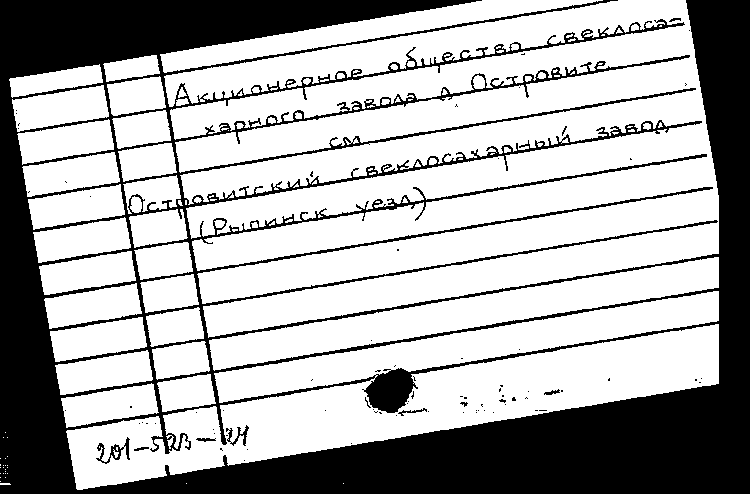 Акционерное общество свеклоса=
харного завода д Островите
см
Островитский свеклосахарный завод
(Рыпинск уезд)
201-523-24